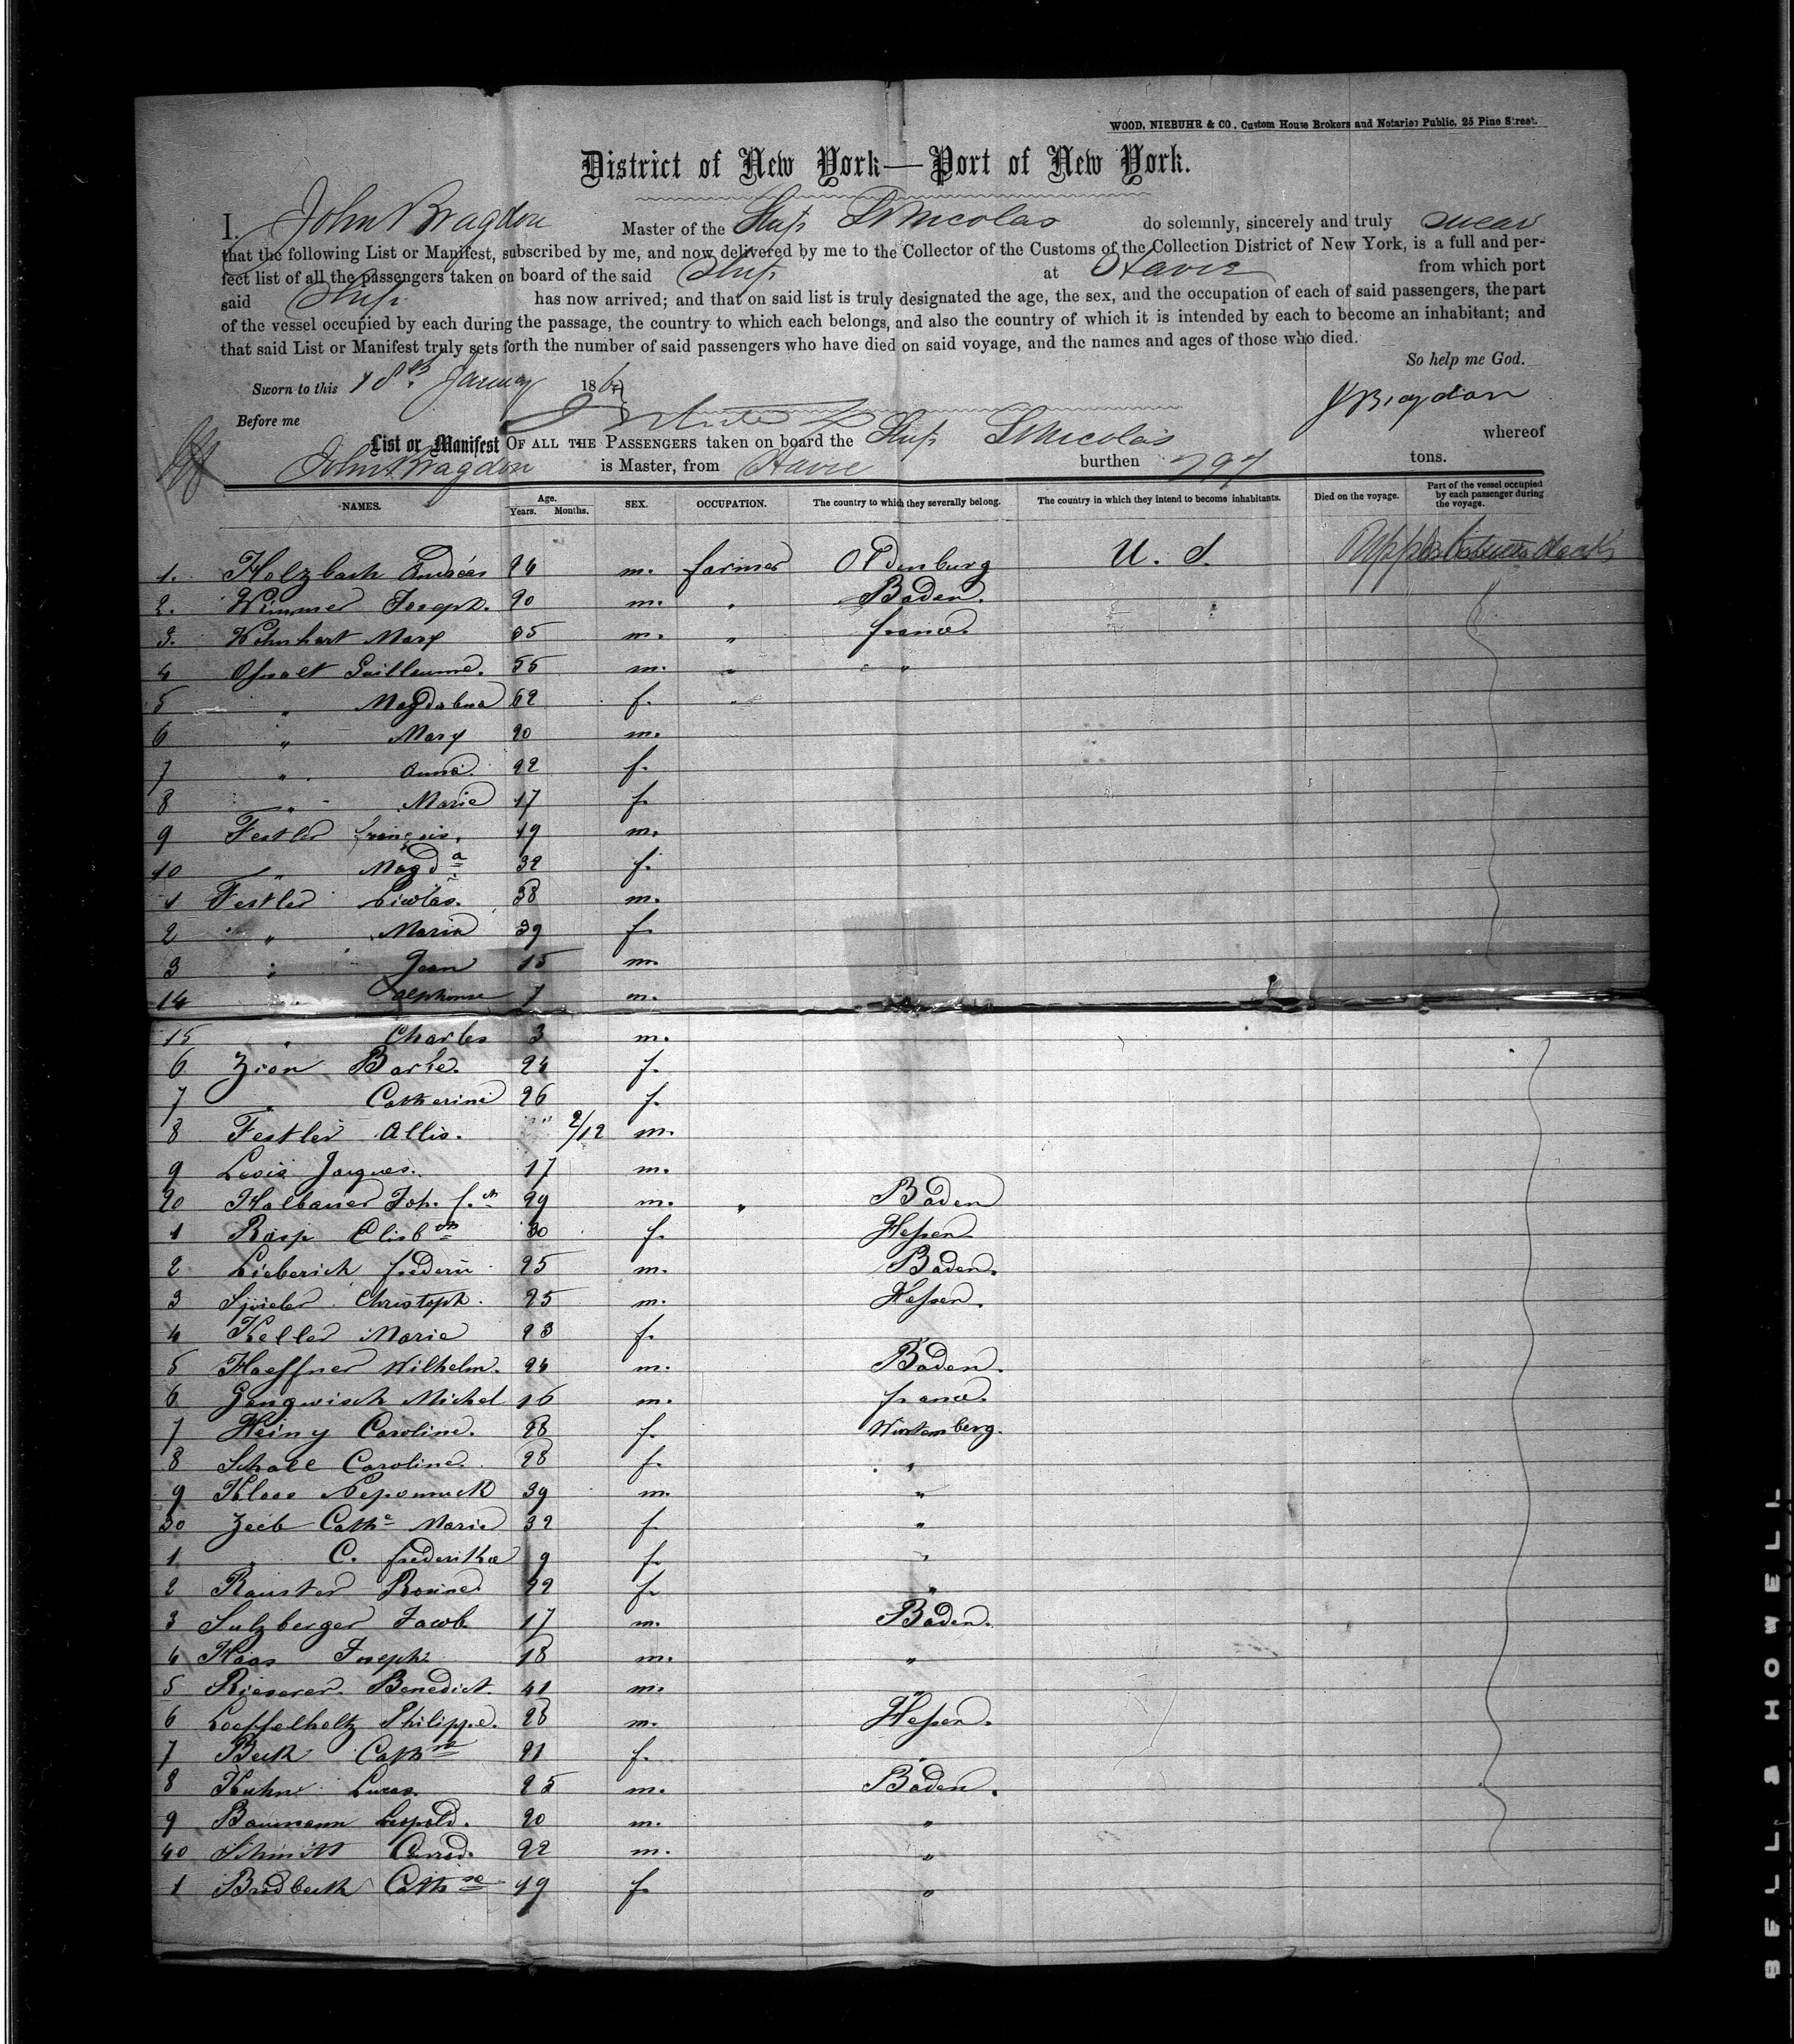 WOOD, NIEBUHR & CO., Custom House Brokers and Notaries Public, 25 Pine Street.
District of New York—Port of New York.
I, John Bragdon Master of the Ship St Nicolas do solemnly, sincerely and truly swear
that the following List or Manifest, subscribed by me, and now delivered by me to the Collector of the Customs of the Collection District of New York, is a full and per-
fect list of all the passengers taken on board of the said Ship at Havre from which port
said Ship has now arrived; and that on said list is truly designated the age, the sex, and the occupation of each of said passengers, the part
of the vessel occupied by each during the passage, the country to which each belongs, and also the country of which it is intended by each to become an inhabitant; and
that said List or Manifest truly sets forth the number of said passengers who have died on said voyage, and the names and ages of those who died.
So help me God.
Sworn to this 18th January 186
J Bragdon
Before me
List or Manifest OF ALL THE PASSENGERS taken on board the Ship St Nicolas whereof
John Bragdon is Master, from Havre burthen 797 tons.
NAMES. Age. Years. Months. SEX. OCCUPATION. The country to which they severally belong. The country in which they intend to become inhabitants. Died on the voyage. Part of the vessel occupied by each passenger during the voyage.
1. Holzbach Andreas 24 m. farmer Oldenburg U. S. Upper deck
2. Wimmer Joseph. 20 m. " Baden.
3. Kihnhart Mary 35 m. " france.
4 Guillaume. 55 m. " "
5 " Magdalena 62 f. "
6 " Mary 20 m.
7 " Anna. 22 f.
8 " Marie 17 f.
9 Festler françois. 19 m.
10 " Magda 32 f.
1 Festler Nicolas. 38 m.
2 " Maria 39 f.
3 " Jean 15 m.
14 " Alphonse 7 m.
15 " Charles 3 m.
6 Zion Barbe. 24 f.
7 " Catherine 26 f.
8 Festler Allis. " 2/12 m.
9 Louis Jacques. 17 m.
20 Halbauer Joh. 29 m. " Baden
1 Rasp Elisbth 30 f. Hessen.
2 Lieberich frederic 25 m. Baden.
3 Christoph. 25 m. Hessen.
4 Keller Marie 23 f.
5 Haeffner Wilhelm. 24 m. Baden.
6 Gangwisch Michel 16 m. france.
7 Heiny Caroline. 28 f. Wurtemberg.
8 Schall Caroline. 28 f. "
9 Klass Nepomuck 39 m. "
30 Zeeb Cathe Marie 32 f. "
1 " C. frederika 9 f. "
2 Rauster Rosine 22 f. "
3 Sulzberger Jacob 17 m. Baden.
4 Haas Joseph. 18 m. "
5 Rieserer. Benedict. 41 m. "
6 Loeffelholtz Philippe. 28 m. Hessen.
7 Beck Cathne 21 f. "
8 Kuhn Lucas 25 m. Baden.
9 Baumann Leopold. 20 m. "
40 Schmitt Conrad. 22 m. "
1 Bradbeck Cathne 19 f. "
BELL & HOWELL